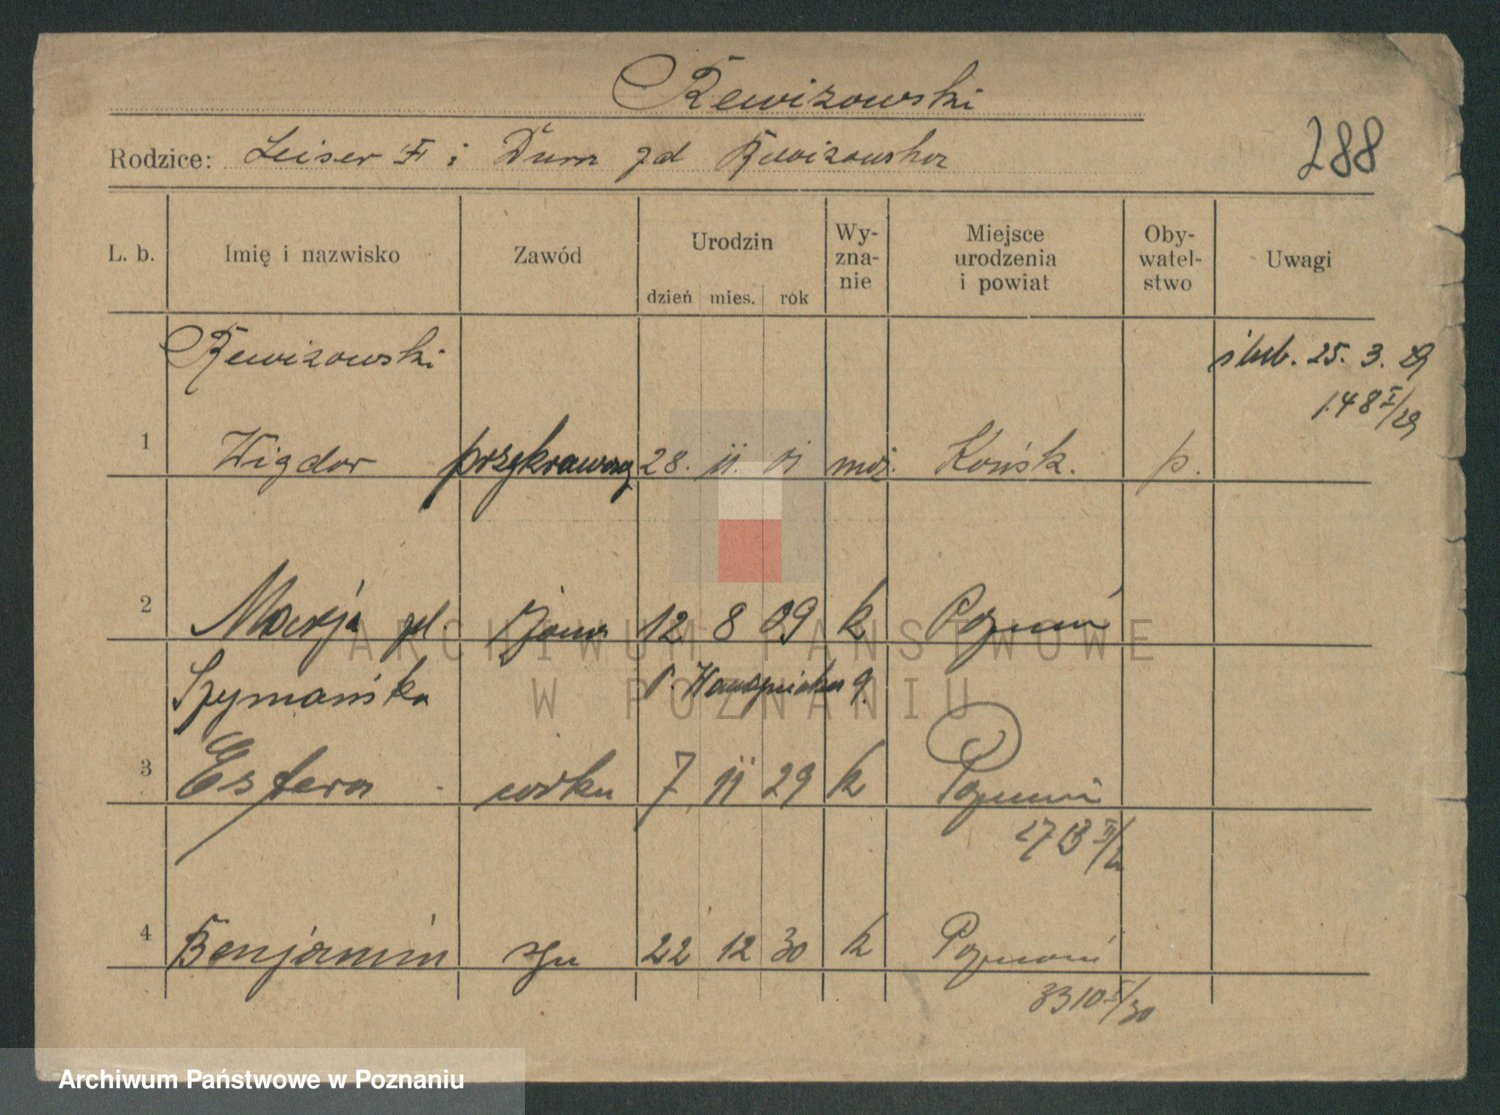 Rewizowski
Rodzice: Leiser i Dwor zd Rewizowska
288
L. b. Imię i nazwisko Zawód Urodzin dzień mies. rok Wy-zna-nie Miejsce urodzenia i powiat Oby-watel-stwo Uwagi
Rewizowski ślub. 25. 3. 29
148 I/29
1 Wigdor przykrawacz 28. 11. 01 moj. Końsk. p.
2 Maryja zd. żona 12 8 09 k Poznań
Szymańska 9.
3 Estera córka 7 11 29 k Poznań
4 Benjamin syn 22 12 30 k Poznań
3310 I/30
ARCHIWUM PAŃSTWOWE
W POZNANIU
Archiwum Państwowe w Poznaniu